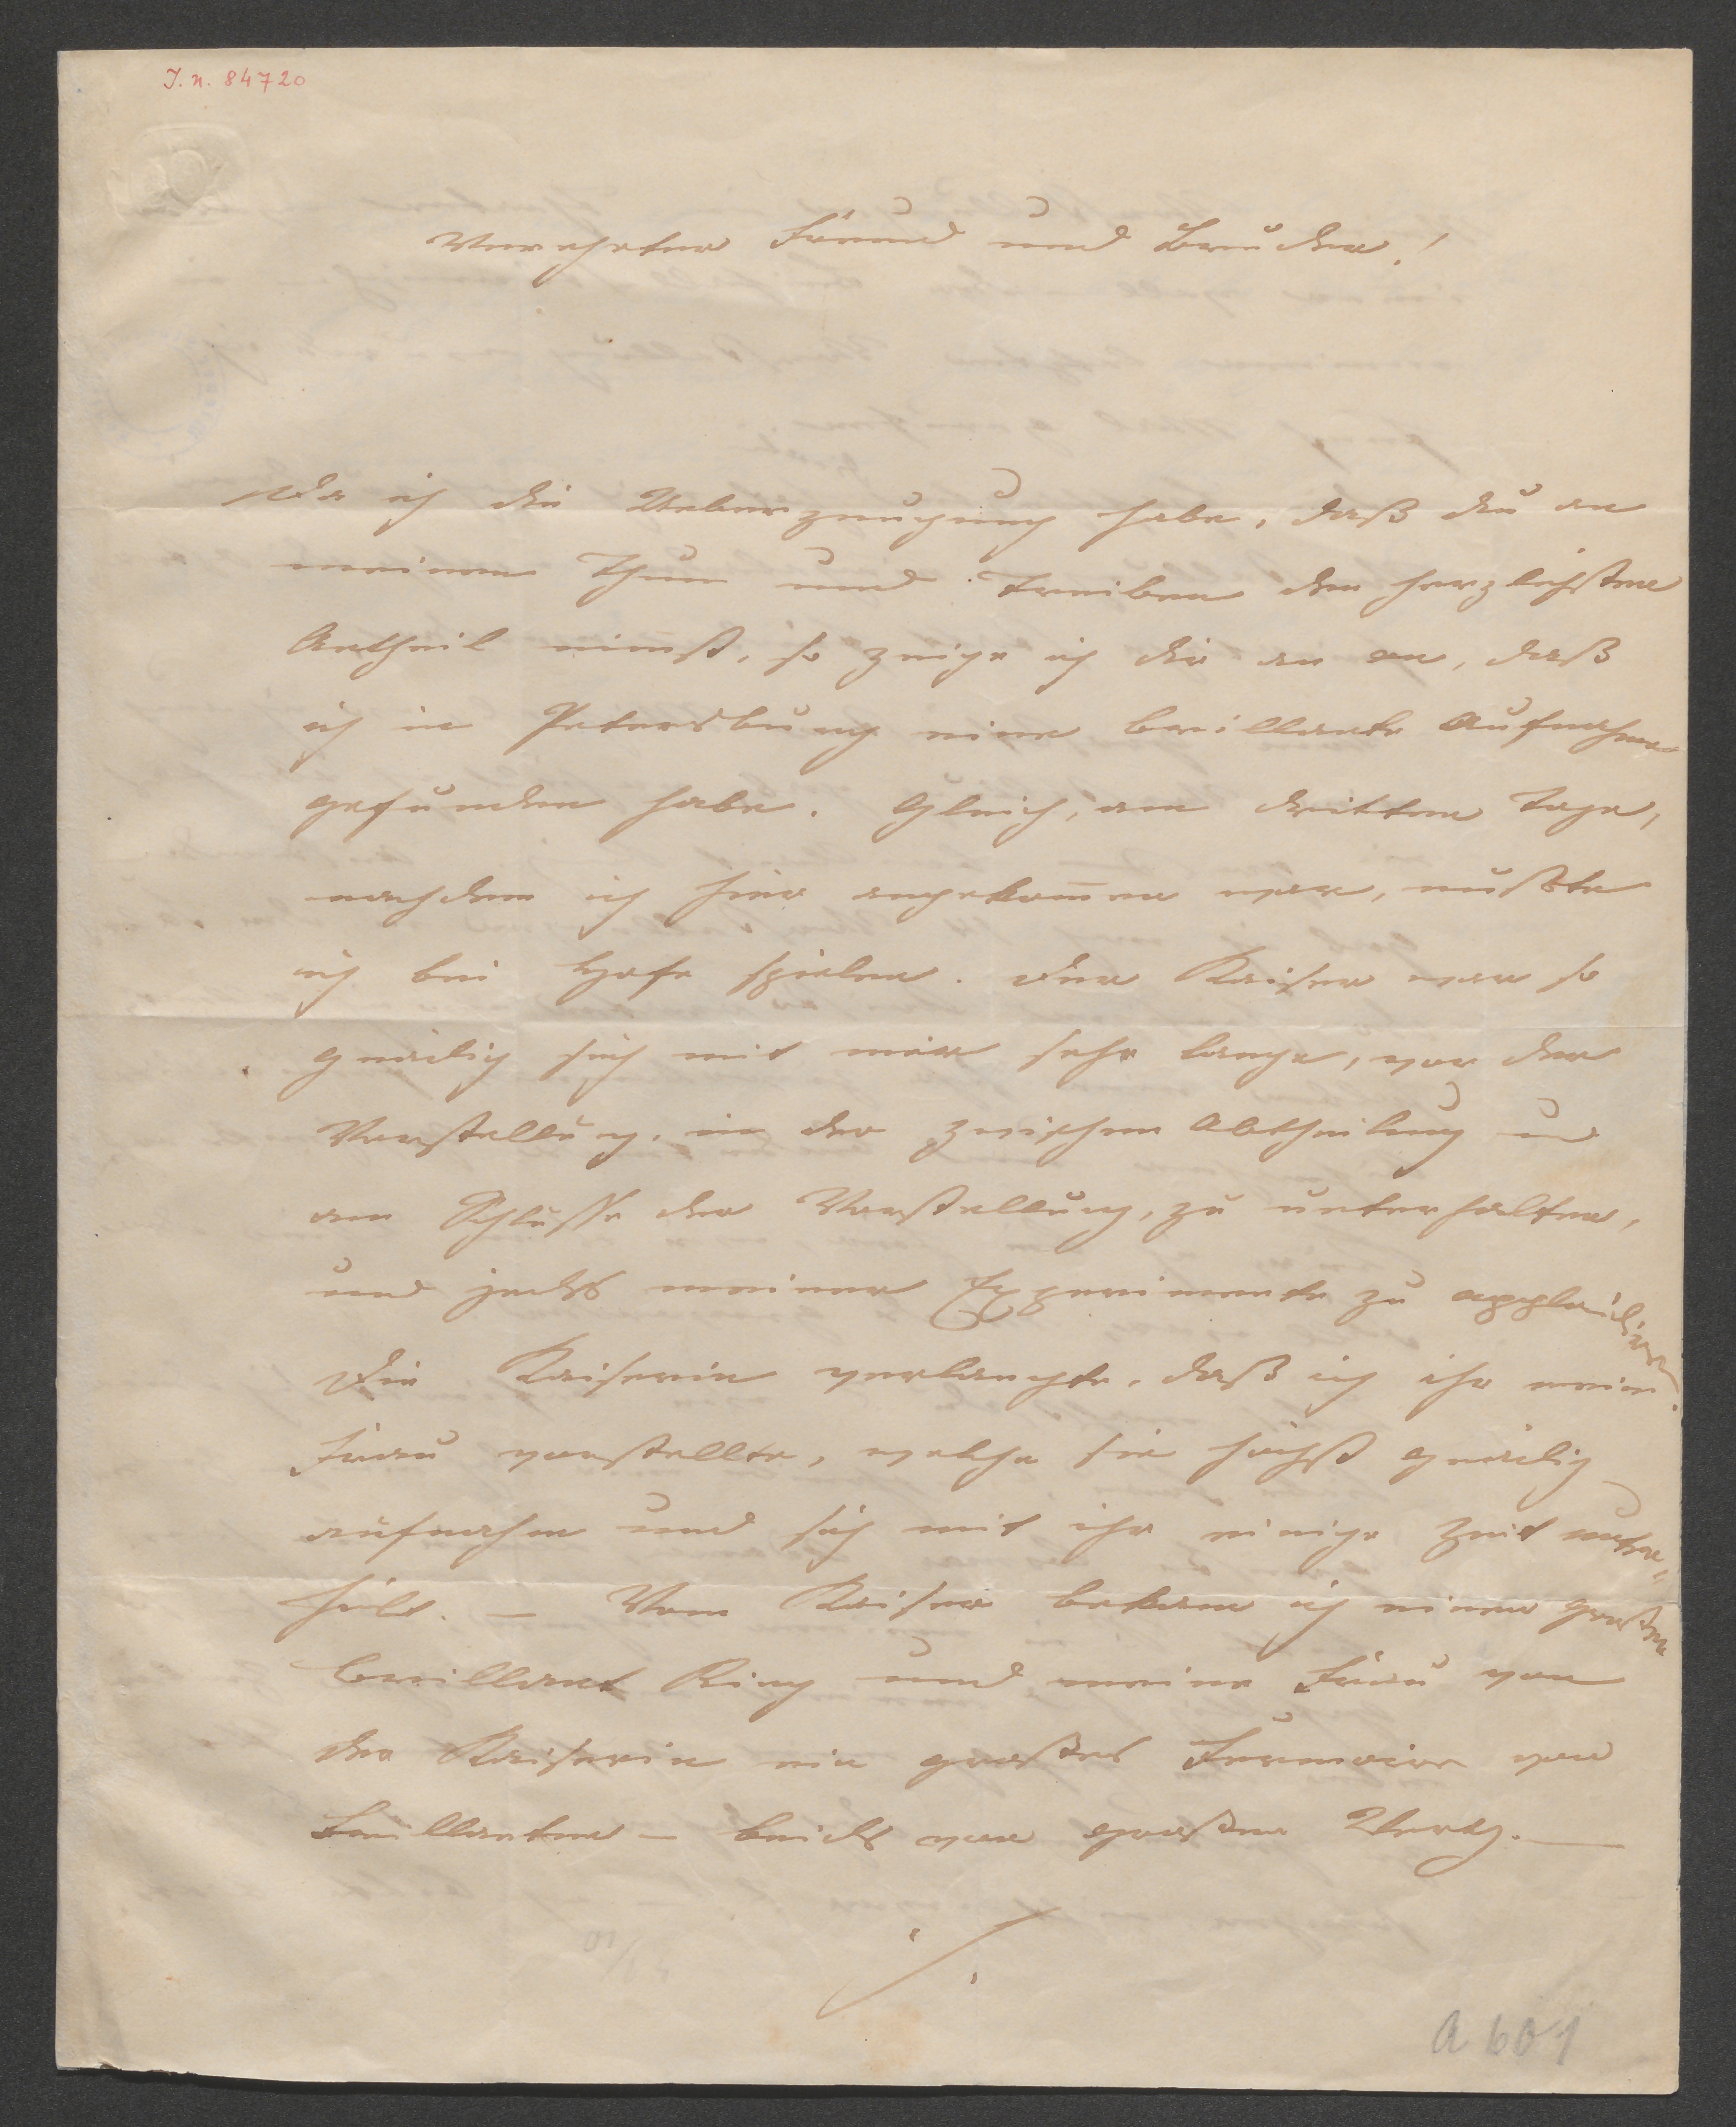 J. N. 84720
Verehrter Freund und Bruder!
Da ich die Ueberzeugung habe, daß du an
meinem Thun und Treiben den herzlichsten
Antheil nimst, so zeige ich dir an an, daß
ich in Petersburg eine brillante Aufnahme
gefunden habe. Gleich, am dritten Tage,
nachdem ich hier angekom̅en war, mußte
ich bei Hofe spielen. Der Kaiser war so
gnädig sich mit mir sehr lange, vor der
Vorstellung, in der zwischen Abtheilung und
am Schlusse der Vorstellung, zu unterhalten,
und jedes meiner Experimente zu applaudiren.
Die Kaiserin verlangte, daß ich ihr meine
Frau vorstellte, welche sie höchst gnädig
aufnahm und sich mit ihr einige Zeit unter-
hielt. – Vom Kaiser bekam ich einen großen
brillant Ring und meine Frau von
der Kaiserin ein großes Fermoire von
Brillanten – beides von großen Werth. —
./.
A 601